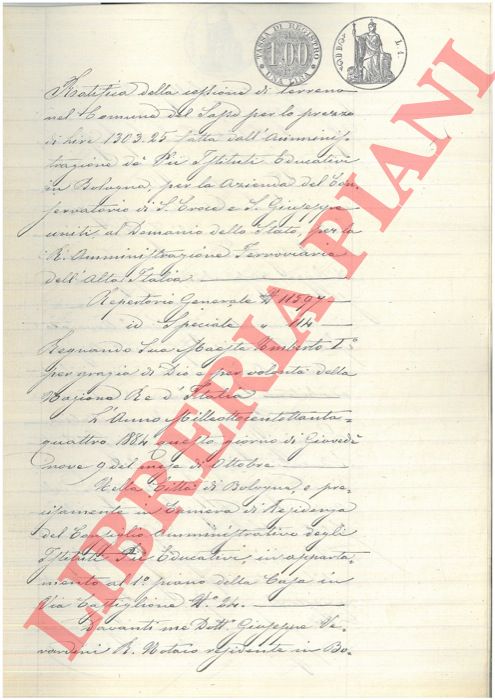 TASSA DI REGISTRO
1.00
UNA LIRA
L. 1.
Ratifica della cessione di terreno
nel Comune del Sasso per lo prezzo
di lire 1303.25 fatta dall'Ammini-
strazione de' Pii Istituti Educativi
in Bologna, per la Azienda del Con-
servatorio di S. Croce e S. Giuseppe
uniti, al Demanio dello Stato, per la
R. Amministrazione Ferroviaria
dell'Alta Italia
Repertorio Generale N° 11597
id Speciale " 114
Regnando Sua Maestà Umberto I°
per grazia di Dio e per volontà della
Nazione Re d'Italia
L'Anno Milleottocentottanta-
quattro 1884 questo giorno di Giovedì
nove 9 del mese di Ottobre
Nella Città di Bologna, e pre-
cisamente in Camera di Residenza
del Consiglio Amministrativo degli
Istituti Pii Educativi, in apparta-
mento al 1° piano della Casa in
Via Castiglione N° 24.
Davanti me Dott. Giuseppe Ve-
rardini R. Notaio residente in Bo-
LIBRERIA PIANI